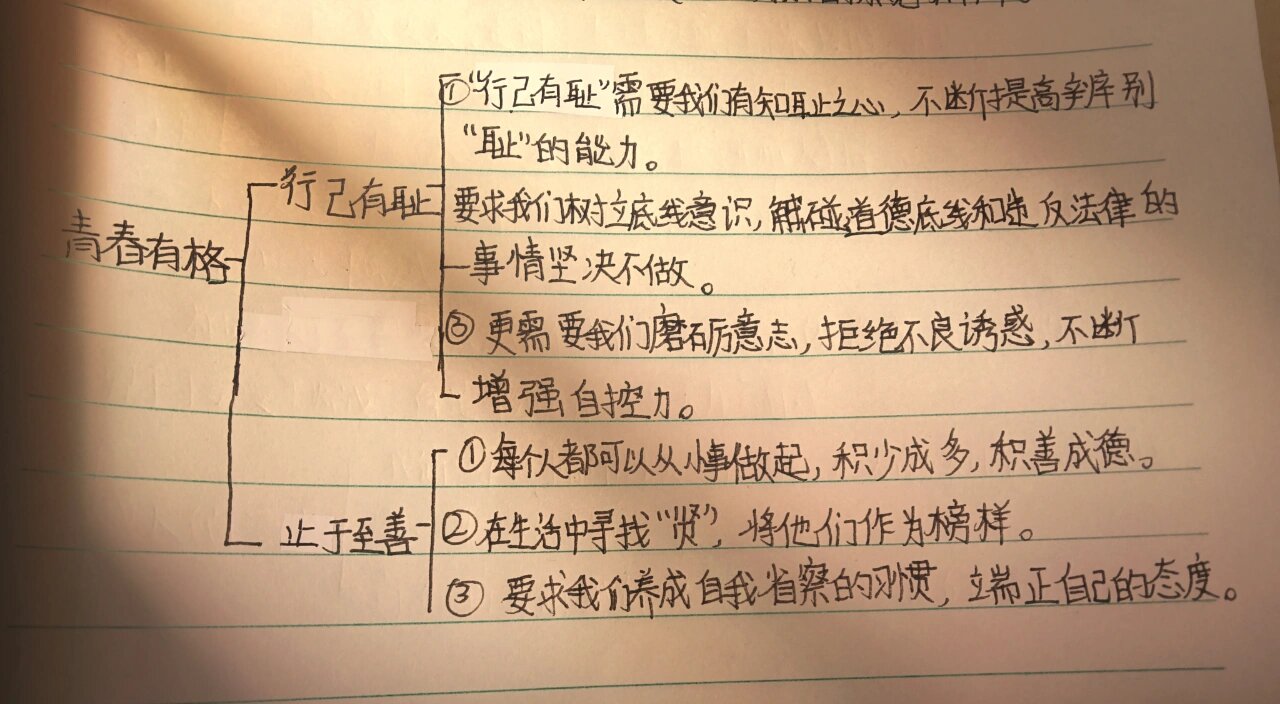 青春有格
行己有耻
①“行己有耻”需要我们有知耻之心，不断提高辨别
“耻”的能力。
要求我们树立底线意识，触碰道德底线和违反法律的
事情坚决不做。
③更需要我们磨砺意志，拒绝不良诱惑，不断
增强自控力。
止于至善
①每个人都可以从小事做起，积少成多，积善成德。
②在生活中寻找“贤”，将他们作为榜样。
③要求我们养成自我省察的习惯，端正自己的态度。